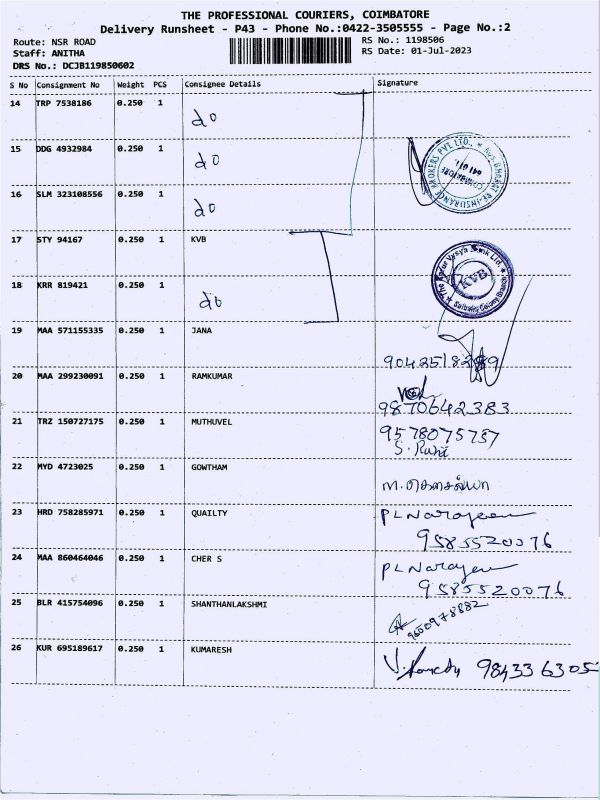 THE PROFESSIONAL COURIERS, COIMBATORE
Delivery Runsheet - P43 - Phone No.:0422-3505555 - Page No.:2
Route: NSR ROAD
Staff: ANITHA
DRS No.: DCJB119850602
RS No.: 1198506
RS Date: 01-Jul-2023
S No Consignment No Weight PCS Consignee Details Signature
14 TRP 7538186 0.250 1 do
15 DDG 4932984 0.250 1 do
16 SLM 323108556 0.250 1 do
17 STY 94167 0.250 1 KVB
18 KRR 819421 0.250 1 do
KVB
19 MAA 571155335 0.250 1 JANA
20 MAA 299230091 0.250 1 RAMKUMAR 9870642383
21 TRZ 150727175 0.250 1 MUTHUVEL 9578075737
22 MYD 4723025 0.250 1 GOWTHAM
23 HRD 758285971 0.250 1 QUAILTY 9585520076
24 MAA 860464046 0.250 1 CHER S 9585520076
25 BLR 415754096 0.250 1 SHANTHANLAKSHMI 9600978882
26 KUR 695189617 0.250 1 KUMARESH 9843363052